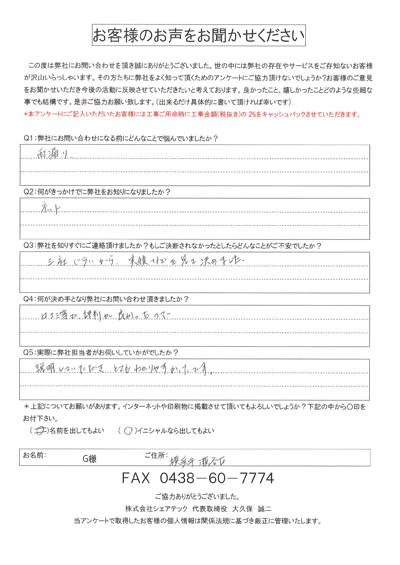 お客様のお声をお聞かせください
この度は弊社にお問い合わせを頂き誠にありがとうございました。世の中には弊社の存在やサービスをご存知ないお客様
が沢山いらっしゃいます。その方たちに弊社をよく知って頂くためのアンケートにご協力頂けないでしょうか?お客様のご意見
をお聞かせいただき今後の活動に反映させていただきたいと考えております。良かったこと、嬉しかったことどのような些細な
事でも結構です。是非ご協力お願い致します。(出来るだけ具体的に書いて頂ければ幸いです)
*本アンケートにご記入いただいたお客様には工事ご用命時に工事金額(税抜き)の2%をキャッシュバックさせていただきます。
Q1:弊社にお問い合わせになる前にどんなことで悩んでいましたか?
雨漏り、
Q2:何がきっかけでに弊社をお知りになりましたか?
ネット
Q3:弊社を知りすぐにご連絡頂けましたか?もしご決断されなかったとしたらどんなことがご不安でしたか?
三社ぐらいから 実績などを見て決めました.
Q4:何が決め手となり弊社にお問い合わせ頂きましたか?
口コミ 評判が良かったので
Q5:実際に弊社担当者がお伺いしていかがでしたか?
説明していただき とてもわかりやすかったです。
*上記についてお願いがあります。インターネットや印刷物に掲載させて頂いてもよろしいでしょうか?下記の中から〇印を
お付下さい。
( )名前を出してもよい ( 〇 )イニシャルなら出してもよい
お名前: G様 ご住所: 横浜市
FAX 0438-60-7774
ご協力ありがとうございました。
株式会社シェアテック 代表取締役 大久保 誠二
当アンケートで取得したお客様の個人情報は関係法規に基づき厳正に管理いたします。